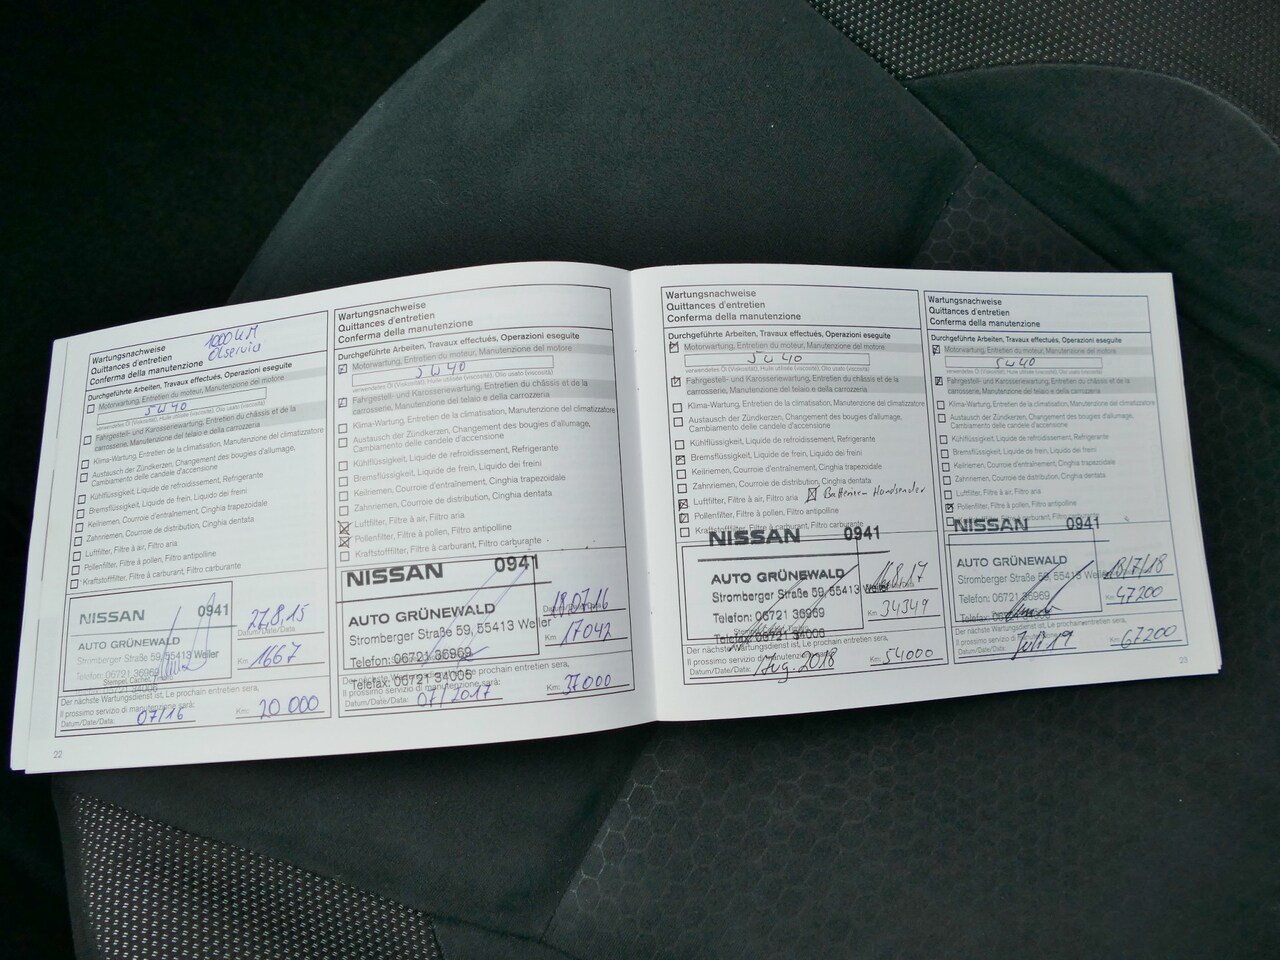 Wartungsnachweise
Quittances d'entretien
Conferma della manutenzione
1000 KM
Ölservice
Durchgeführte Arbeiten, Travaux effectués, Operazioni eseguite
Motorwartung, Entretien du moteur, Manutenzione del motore
5W40
verwendetes Öl (Viskosität), Huile utilisée (viscosité), Olio usato (viscosità)
Fahrgestell- und Karosseriewartung, Entretien du châssis et de la
carrosserie, Manutenzione del telaio e della carrozzeria
Klima-Wartung, Entretien de la climatisation, Manutenzione del climatizzatore
Austausch der Zündkerzen, Changement des bougies d'allumage,
Cambiamento delle candele d'accensione
Kühlflüssigkeit, Liquide de refroidissement, Refrigerante
Bremsflüssigkeit, Liquide de frein, Liquido dei freni
Keilriemen, Courroie d'entraînement, Cinghia trapezoidale
Zahnriemen, Courroie de distribution, Cinghia dentata
Luftfilter, Filtre à air, Filtro aria
Pollenfilter, Filtre à pollen, Filtro antipolline
Kraftstofffilter, Filtre à carburant, Filtro carburante
NISSAN 0941
AUTO GRÜNEWALD
Stromberger Straße 59, 55413 Weiler
Telefon: 06721 36969
Stempel, Cachet, Timbro
Telefax: 06721 34006
27.8.15
Datum/Date/Data:
Km: 1667
Der nächste Wartungsdienst ist, Le prochain entretien sera,
Il prossimo servizio di manutenzione sarà:
Datum/Date/Data: 07/16 Km: 20 000
22
Wartungsnachweise
Quittances d'entretien
Conferma della manutenzione
Durchgeführte Arbeiten, Travaux effectués, Operazioni eseguite
Motorwartung, Entretien du moteur, Manutenzione del motore
5W40
verwendetes Öl (Viskosität), Huile utilisée (viscosité), Olio usato (viscosità)
Fahrgestell- und Karosseriewartung, Entretien du châssis et de la
carrosserie, Manutenzione del telaio e della carrozzeria
Klima-Wartung, Entretien de la climatisation, Manutenzione del climatizzatore
Austausch der Zündkerzen, Changement des bougies d'allumage,
Cambiamento delle candele d'accensione
Kühlflüssigkeit, Liquide de refroidissement, Refrigerante
Bremsflüssigkeit, Liquide de frein, Liquido dei freni
Keilriemen, Courroie d'entraînement, Cinghia trapezoidale
Zahnriemen, Courroie de distribution, Cinghia dentata
Luftfilter, Filtre à air, Filtro aria
Pollenfilter, Filtre à pollen, Filtro antipolline
Kraftstofffilter, Filtre à carburant, Filtro carburante
NISSAN 0941
AUTO GRÜNEWALD
Stromberger Straße 59, 55413 Weiler
Telefon: 06721 36969
Telefax: 06721 34006
18.07.16
Datum/Date/Data:
Km: 17042
Der nächste Wartungsdienst ist, Le prochain entretien sera,
Il prossimo servizio di manutenzione sarà:
Datum/Date/Data: 07/2017 Km: 37000
Wartungsnachweise
Quittances d'entretien
Conferma della manutenzione
Durchgeführte Arbeiten, Travaux effectués, Operazioni eseguite
Motorwartung, Entretien du moteur, Manutenzione del motore
5W40
verwendetes Öl (Viskosität), Huile utilisée (viscosité), Olio usato (viscosità)
Fahrgestell- und Karosseriewartung, Entretien du châssis et de la
carrosserie, Manutenzione del telaio e della carrozzeria
Klima-Wartung, Entretien de la climatisation, Manutenzione del climatizzatore
Austausch der Zündkerzen, Changement des bougies d'allumage,
Cambiamento delle candele d'accensione
Kühlflüssigkeit, Liquide de refroidissement, Refrigerante
Bremsflüssigkeit, Liquide de frein, Liquido dei freni
Keilriemen, Courroie d'entraînement, Cinghia trapezoidale
Zahnriemen, Courroie de distribution, Cinghia dentata
Luftfilter, Filtre à air, Filtro aria Batterien Handsender
Pollenfilter, Filtre à pollen, Filtro antipolline
Kraftstofffilter, Filtre à carburant, Filtro carburante
NISSAN 0941
AUTO GRÜNEWALD
Stromberger Straße 59, 55413 Weiler
Telefon: 06721 36969
Telefax: 06721 34006
Km: 34349
Der nächste Wartungsdienst ist, Le prochain entretien sera,
Il prossimo servizio di manutenzione sarà:
Datum/Date/Data: Aug. 2018 Km: 54000
Wartungsnachweise
Quittances d'entretien
Conferma della manutenzione
Durchgeführte Arbeiten, Travaux effectués, Operazioni eseguite
Motorwartung, Entretien du moteur, Manutenzione del motore
5W40
verwendetes Öl (Viskosität), Huile utilisée (viscosité), Olio usato (viscosità)
Fahrgestell- und Karosseriewartung, Entretien du châssis et de la
carrosserie, Manutenzione del telaio e della carrozzeria
Klima-Wartung, Entretien de la climatisation, Manutenzione del climatizzatore
Austausch der Zündkerzen, Changement des bougies d'allumage,
Cambiamento delle candele d'accensione
Kühlflüssigkeit, Liquide de refroidissement, Refrigerante
Bremsflüssigkeit, Liquide de frein, Liquido dei freni
Keilriemen, Courroie d'entraînement, Cinghia trapezoidale
Zahnriemen, Courroie de distribution, Cinghia dentata
Luftfilter, Filtre à air, Filtro aria
Pollenfilter, Filtre à pollen, Filtro antipolline
Kraftstofffilter, Filtre à carburant, Filtro carburante
NISSAN 0941
AUTO GRÜNEWALD
Stromberger Straße 59, 55413 Weiler
Telefon: 06721 36969
Telefax:
18/7/18
Km: 47200
Der nächste Wartungsdienst ist, Le prochain entretien sera,
Il prossimo servizio di manutenzione sarà:
Datum/Date/Data: Juli 19 Km: 67200
23